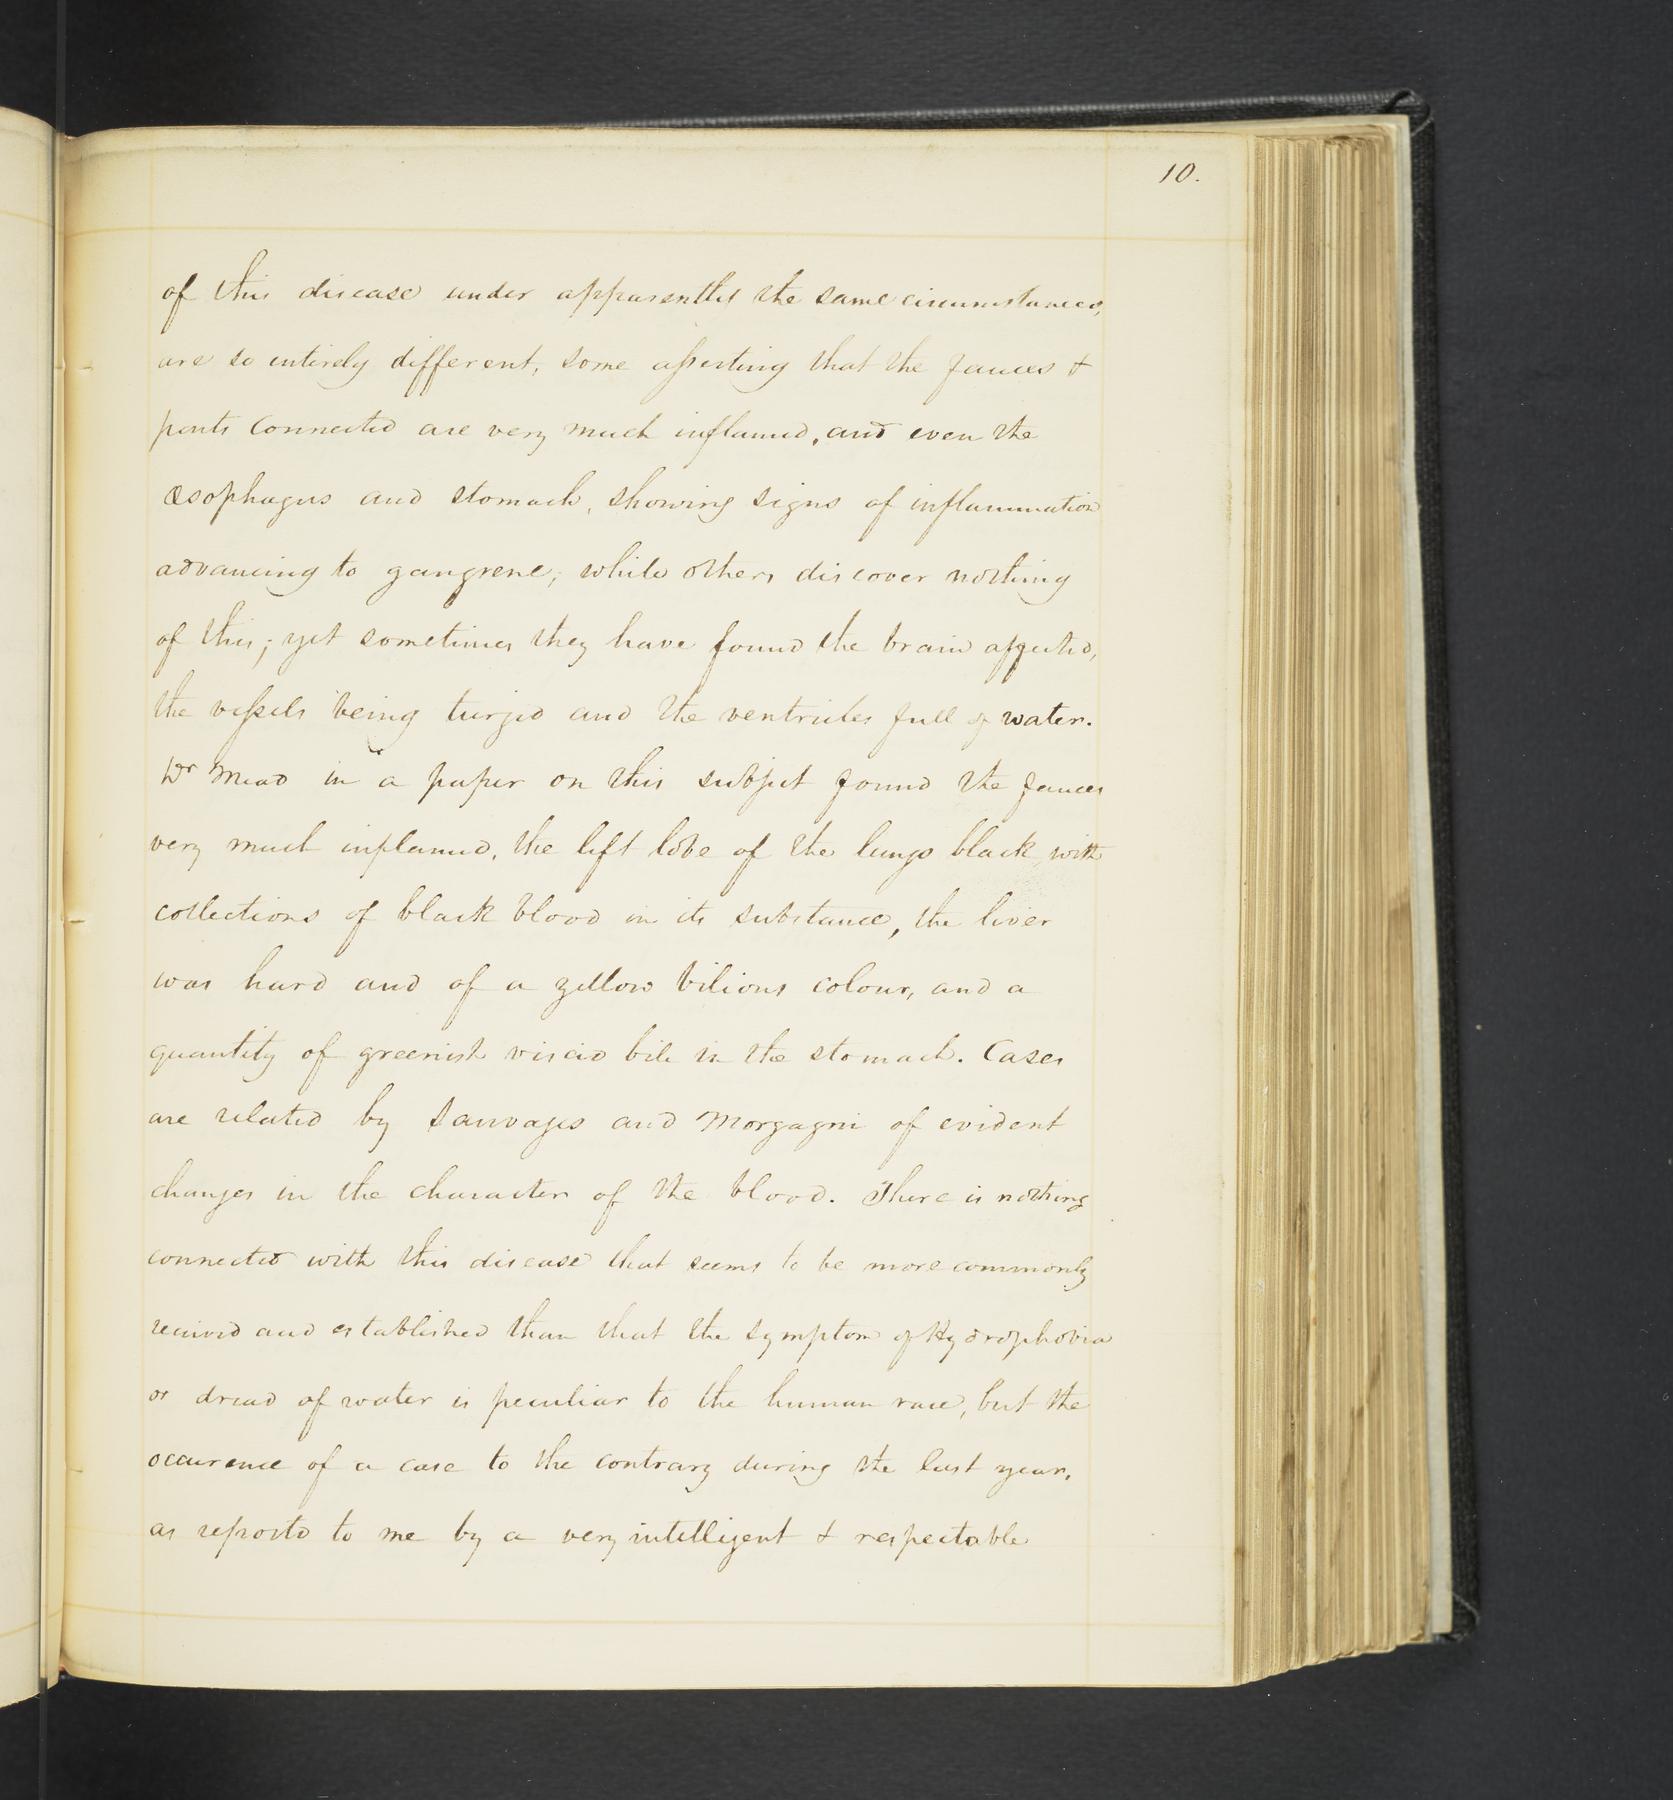 10.
of this disease under apparently the same circumstances,
are so entirely different, some asserting that the fauces &
parts connected are very much inflamed, and even the
œsophagus and stomach, showing signs of inflammation
advancing to gangrene; while others discover nothing
of this; yet sometimes they have found the brain affected,
the vessels being turgid and the ventricles full of water.
Dr Mead in a paper on this subject found the fauces
very much inflamed, the left lobe of the lungs black with
collections of black blood in its substance, the liver
was hard and of a yellow bilious colour, and a
quantity of greenish viscid bile in the stomach. Cases
are related by Sauvages and Morgagni of evident
changes in the character of the blood. There is nothing
connected with this disease that seems to be more commonly
received and established than that the symptom of Hydrophobia
or dread of water is peculiar to the human race, but the
occurence of a case to the contrary during the last year,
as reported to me by a very intelligent & respectable